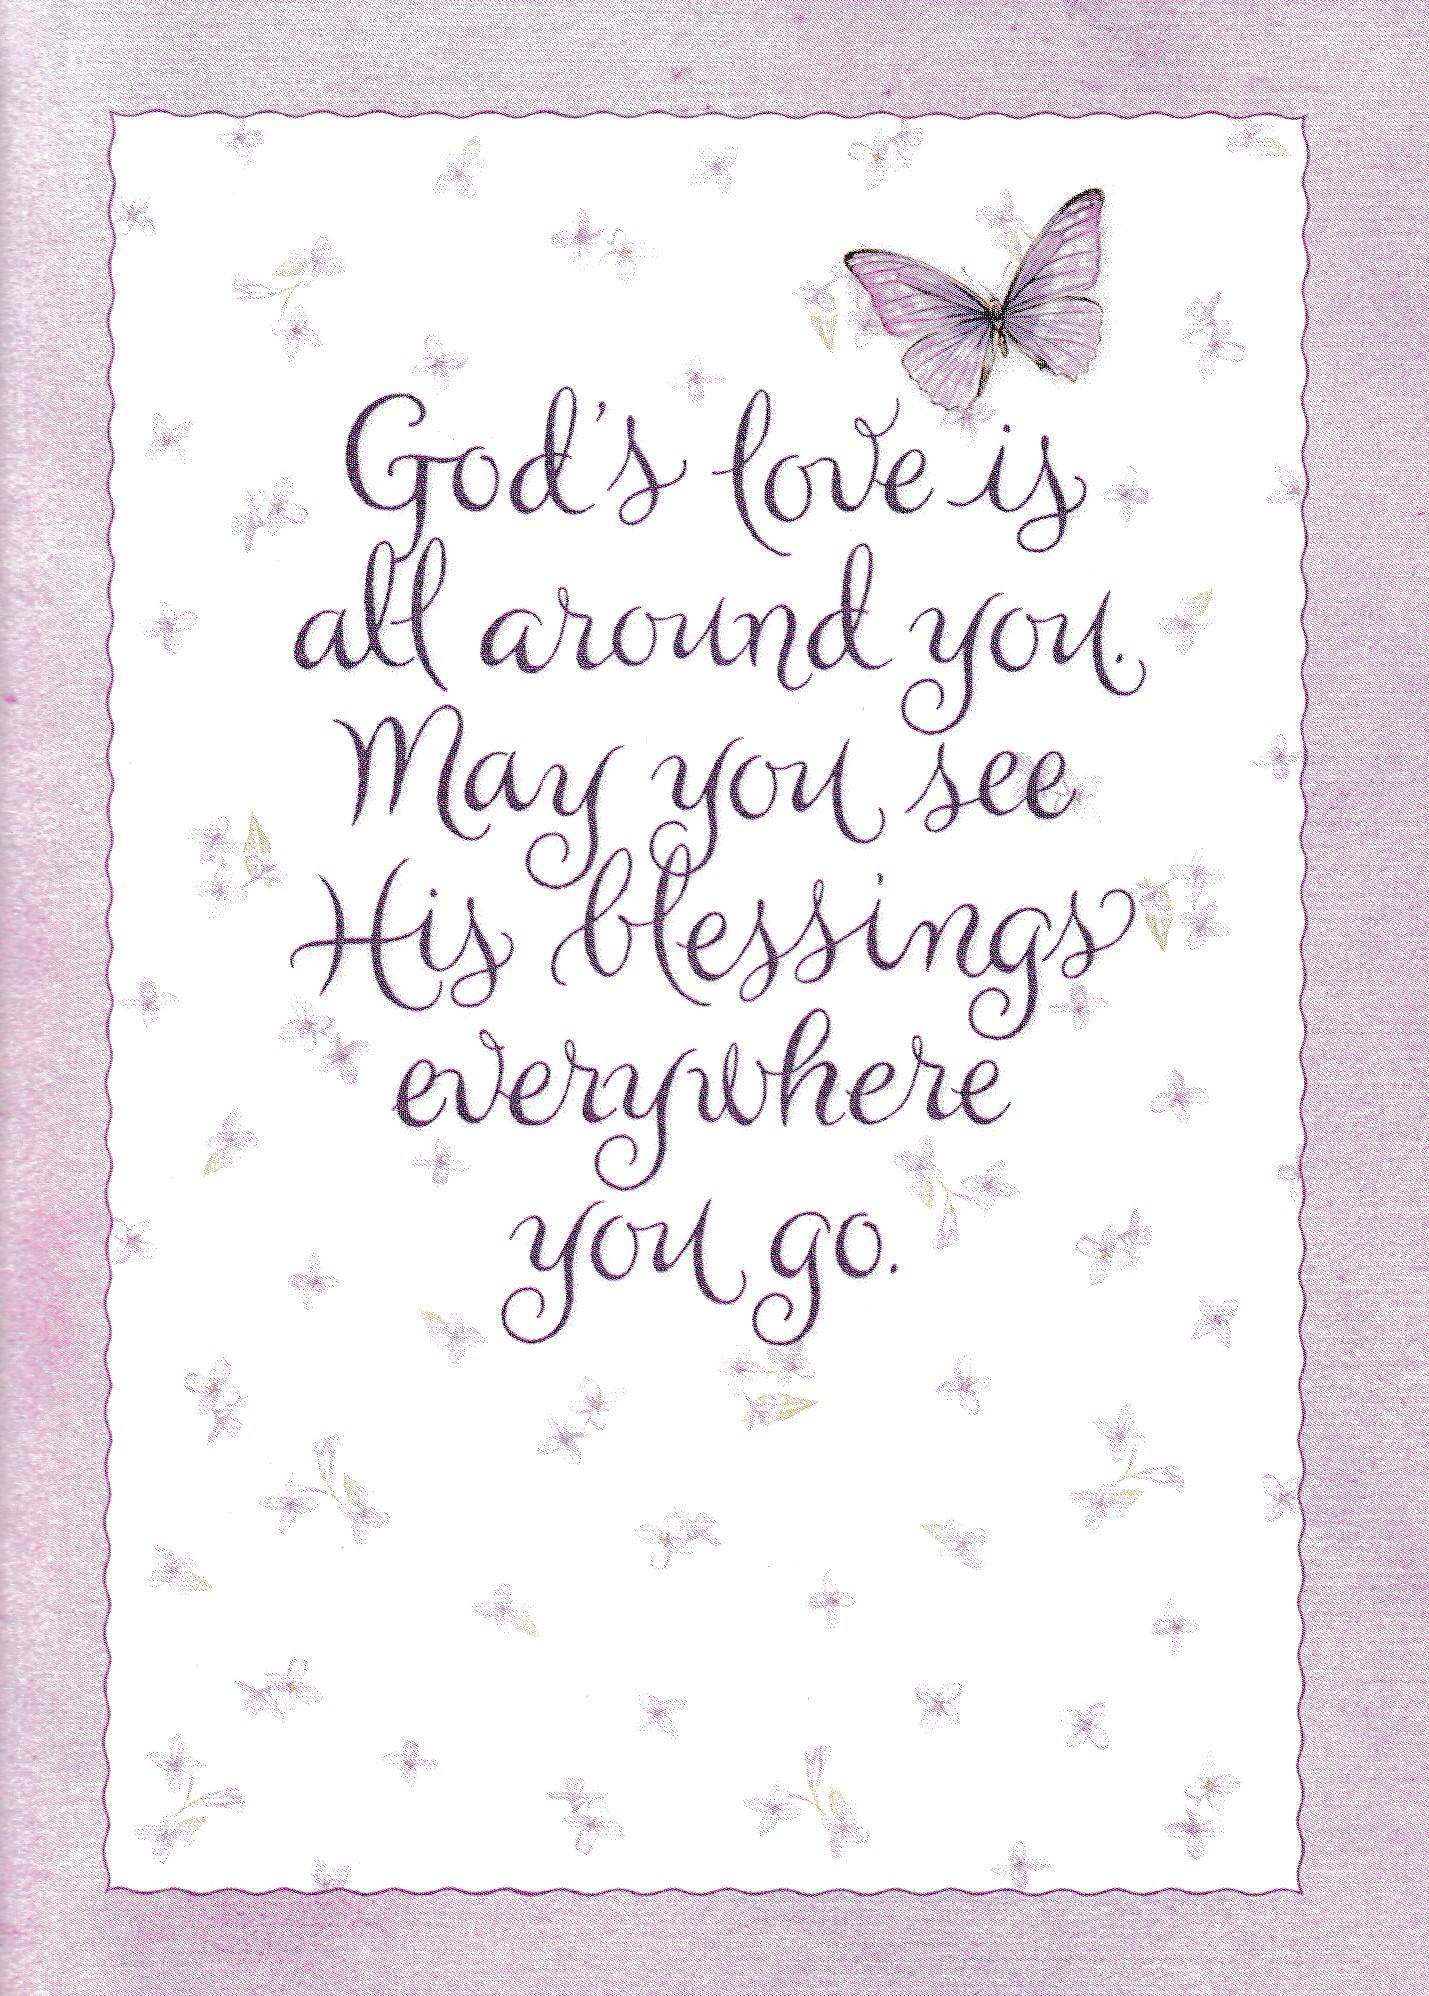 God's love is
all around you.
May you see
His blessings
everywhere
you go.